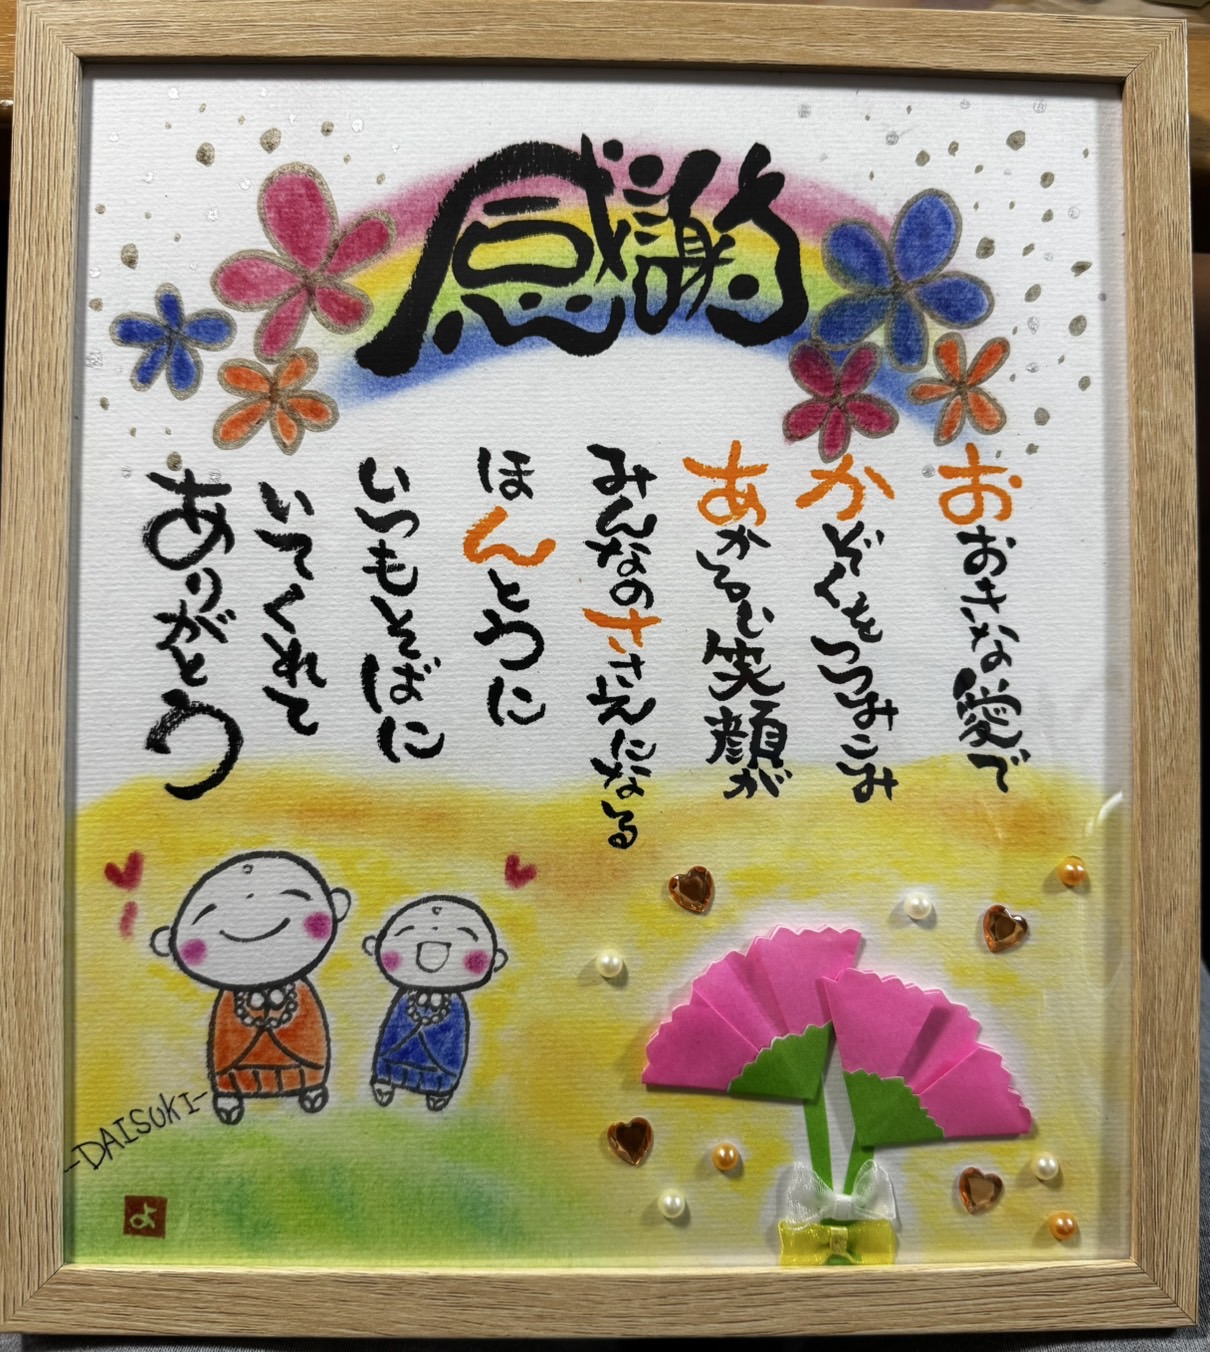 感謝
おおきな愛で
かぞくをつつみこみ
あかるい笑顔が
みんなのささえになる
ほんとうに
いつもそばに
いてくれて
ありがとう
-DAISUKI-
よ